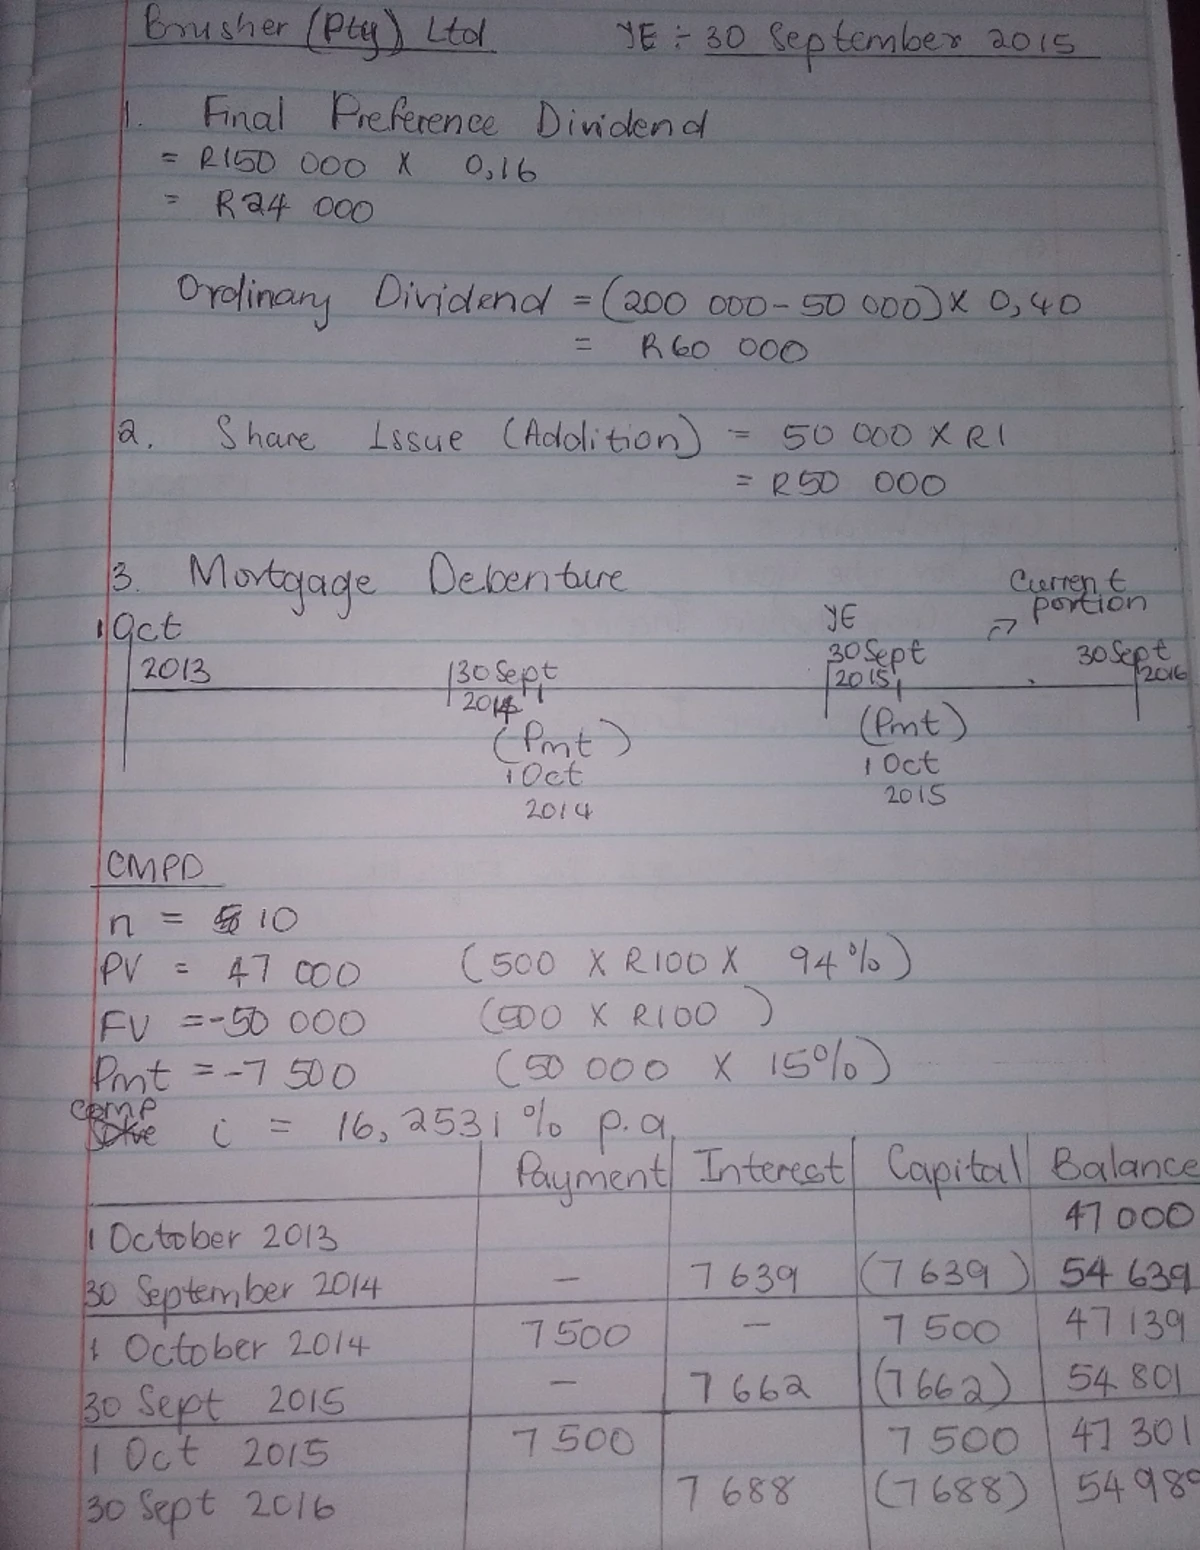 Brusher (Pty) Ltd YE :- 30 September 2015
1. Final Preference Dividend
= R150 000 x 0,16
= R24 000
Ordinary Dividend = (200 000 - 50 000) x 0,40
= R60 000
2. Share Issue (Addition) = 50 000 x R1
= R50 000
3. Mortgage Debenture
Current portion
1 Oct 2013
30 Sept 2014
YE 30 Sept 2015
30 Sept 2016
(Pmt) 1 Oct 2014
(Pmt) 1 Oct 2015
CMPD
n = 10
PV = 47 000 (500 x R100 x 94%)
FV = -50 000 (500 x R100)
Pmt = -7 500 (50 000 x 15%)
comp i = 16,2531 % p.a
Payment Interest Capital Balance
1 October 2013 47 000
30 September 2014 — 7 639 (7 639) 54 639
1 October 2014 7 500 — 7 500 47 139
30 Sept 2015 — 7 662 (7 662) 54 801
1 Oct 2015 7 500 7 500 47 301
30 Sept 2016 7 688 (7 688) 54 989